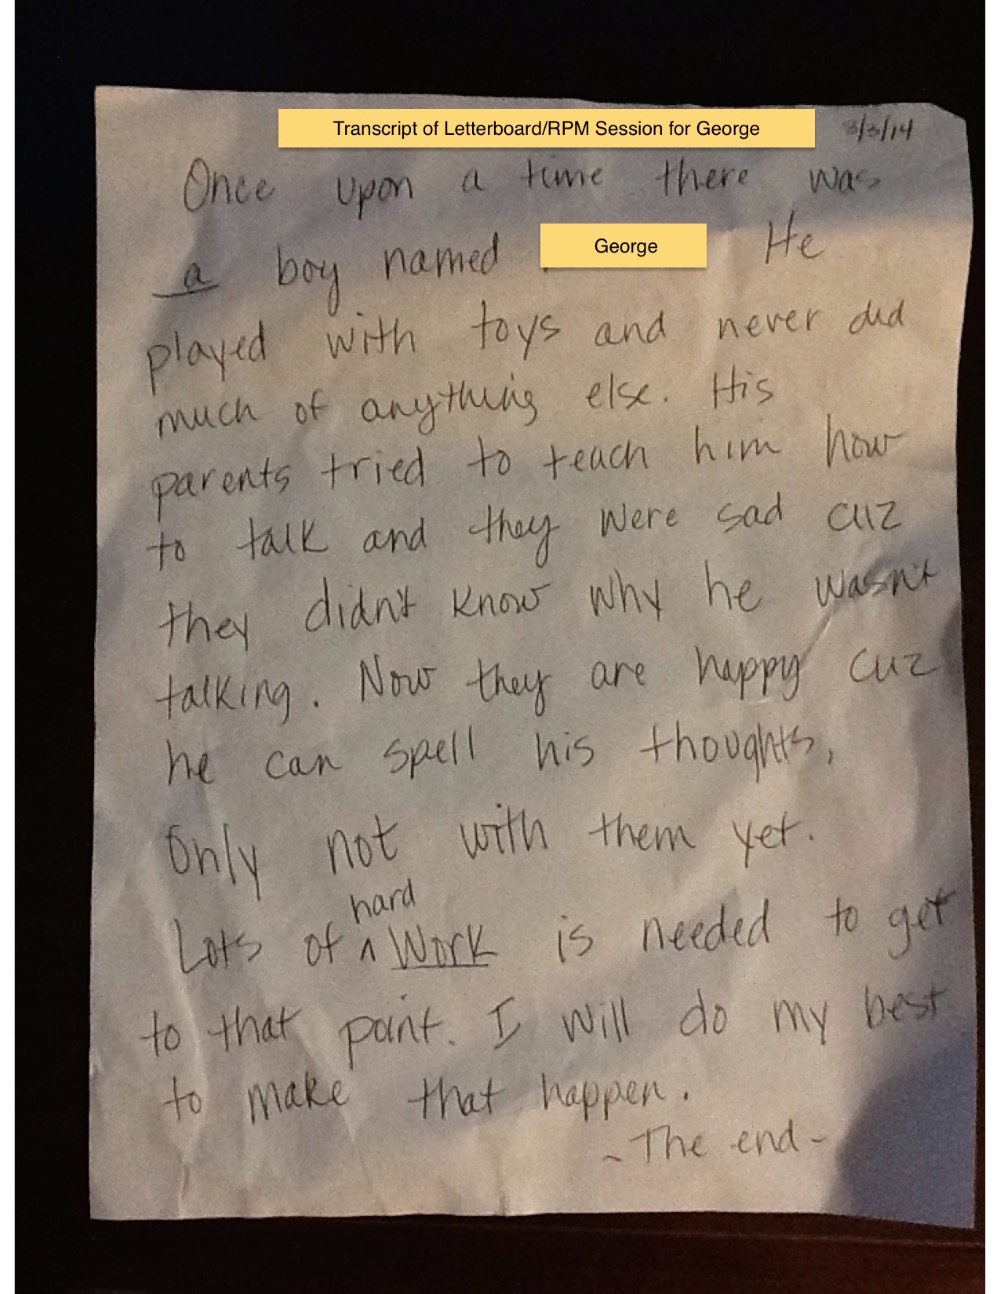 Transcript of Letterboard/RPM Session for George
3/3/14
Once upon a time there was
a boy named George He
played with toys and never did
much of anything else. His
parents tried to teach him how
to talk and they were sad cuz
they didn't know why he wasn't
talking. Now they are happy cuz
he can spell his thoughts,
Only not with them yet.
Lots of ^ hard Work is needed to get
to that point. I will do my best
to make that happen.
~The end~